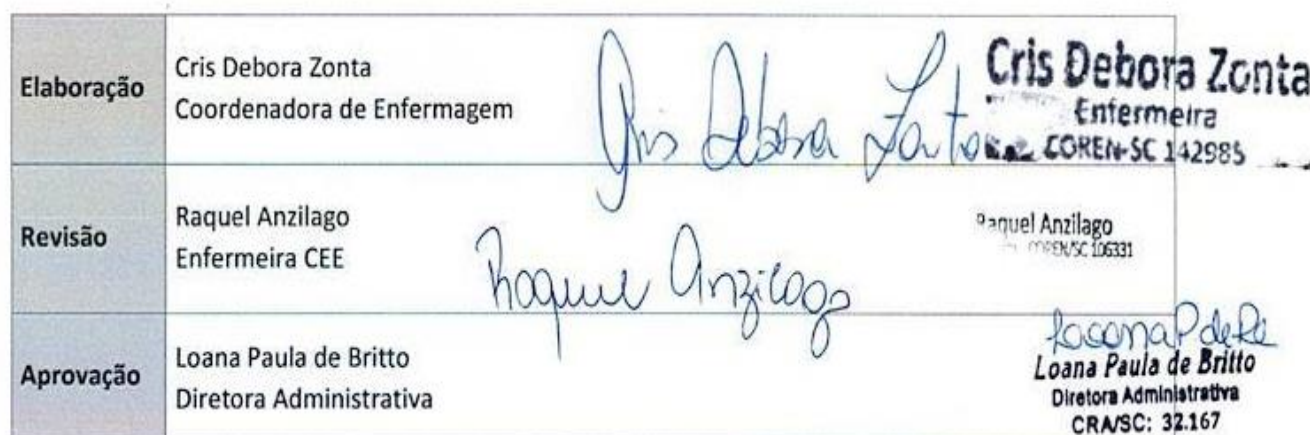 Elaboração
Cris Debora Zonta
Coordenadora de Enfermagem
Cris Debora Zonta
Cris Debora Zonta
Enfermeira
COREN-SC 142985
Revisão
Raquel Anzilago
Enfermeira CEE
Raquel Anzilago
Raquel Anzilago
COREN/SC 106331
Aprovação
Loana Paula de Britto
Diretora Administrativa
Loana P de
Loana Paula de Britto
Diretora Administrativa
CRA/SC: 32.167